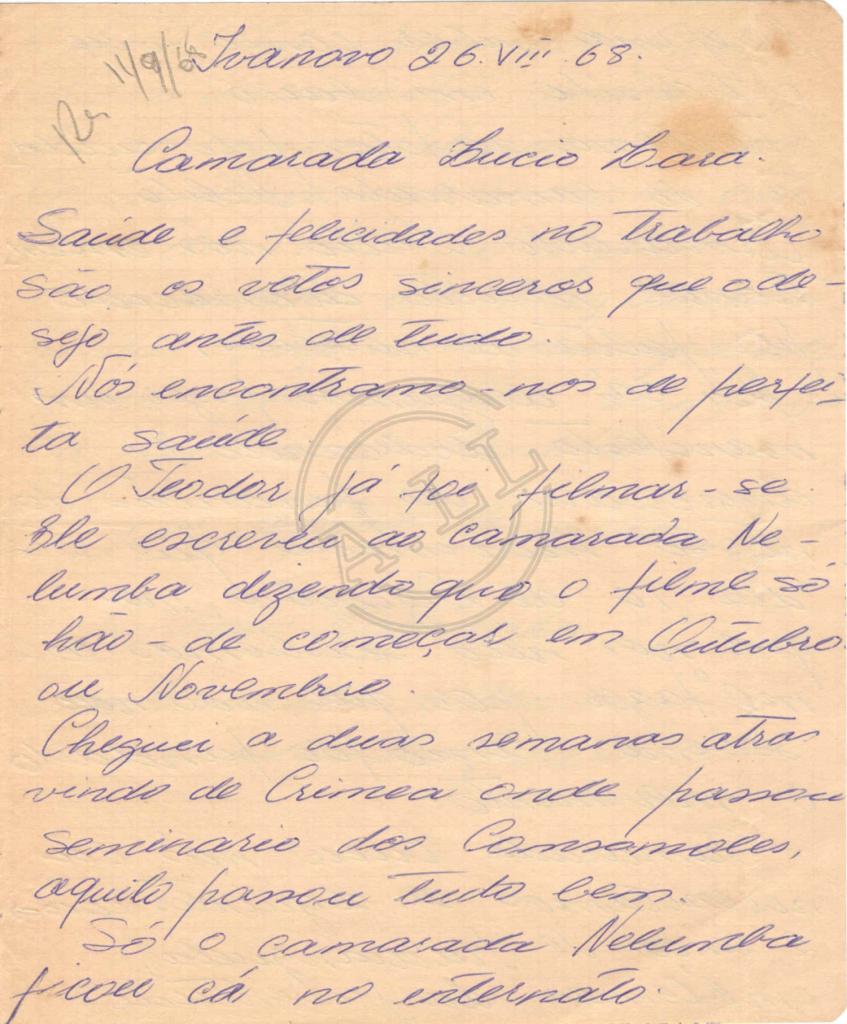 Ivanovo 26.VIII.68.
11/9/68
Camarada Lucio Lara.
Saúde e felicidades no trabalho
são os votos sinceros que o de-
sejo antes de tudo.
Nós encontramo-nos de perfei-
ta saúde.
O Teodor já foi filmar-se.
Ele escreveu ao camarada Ne-
lumba dizendo que o filme só
hão-de começar em Outubro
ou Novembro.
Cheguei a duas semanas atras
vindo de Crimea onde passou
seminario dos Comsomoles,
aquilo passou tudo bem.
Só o camarada Nelumba
ficou cá no internato.
A.EL